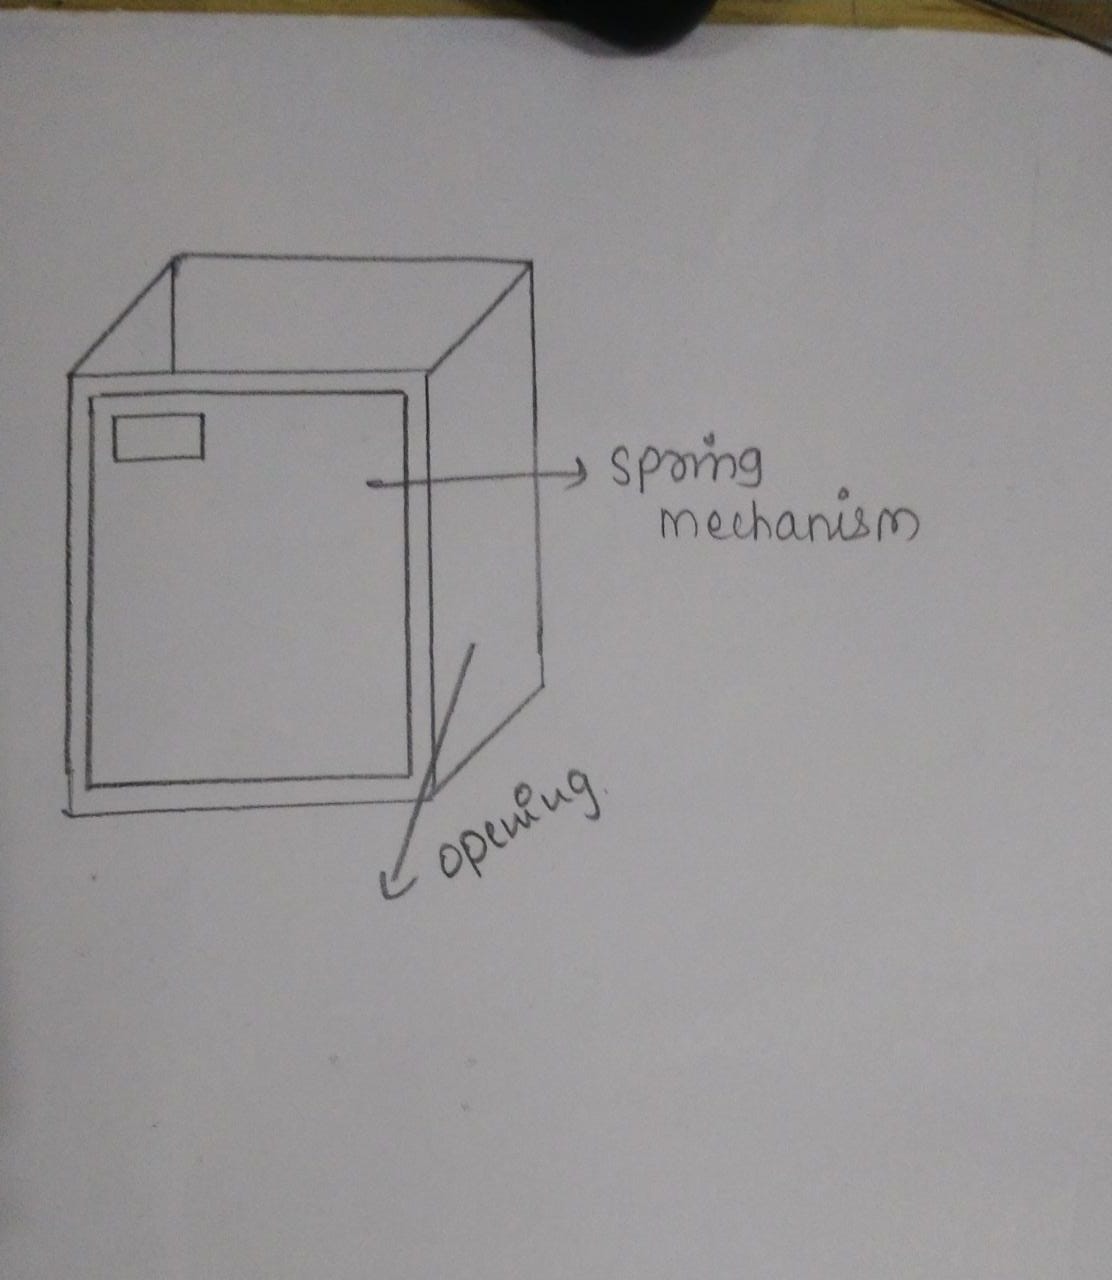 spring
mechanism
opening.